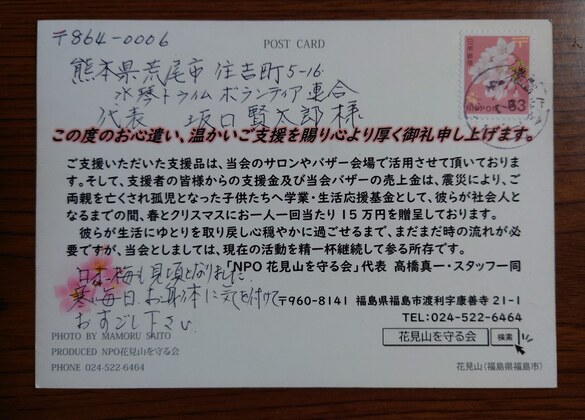 〒864-0006
POST CARD
熊本県荒尾市 住吉町5-16
水琴トライム ボランティア連合
代表 坂口賢太郎 様
日本郵便
NIPPON 63
この度のお心遣い、温かいご支援を賜り心より厚く御礼申し上げます。
ご支援いただいた支援品は、当会のサロンやバザー会場で活用させて頂いておりま
す。そして、支援者の皆様からの支援金及び当会バザーの売上金は、震災により、ご
両親を亡くされ孤児となった子供たちへ学業・生活応援基金として、彼らが社会人と
なるまでの間、春とクリスマスにお一人一回当たり15万円を贈呈しております。
彼らが生活にゆとりを取り戻し心穏やかに過ごせるまで、まだまだ時の流れが必
要ですが、当会としましては、現在の活動を精一杯継続して参る所存です。
「NPO 花見山を守る会」代表 高橋真一・スタッフ一同
日本の梅も見頃となりました。
寒い毎日、お身体に気を付けて
おすごし下さい。
〒960-8141 福島県福島市渡利字康善寺21-1
TEL:024-522-6464
花見山を守る会 検索
PHOTO BY MAMORU SAITO
PRODUCED NPO花見山を守る会
PHONE 024-522-6464
花見山(福島県福島市)